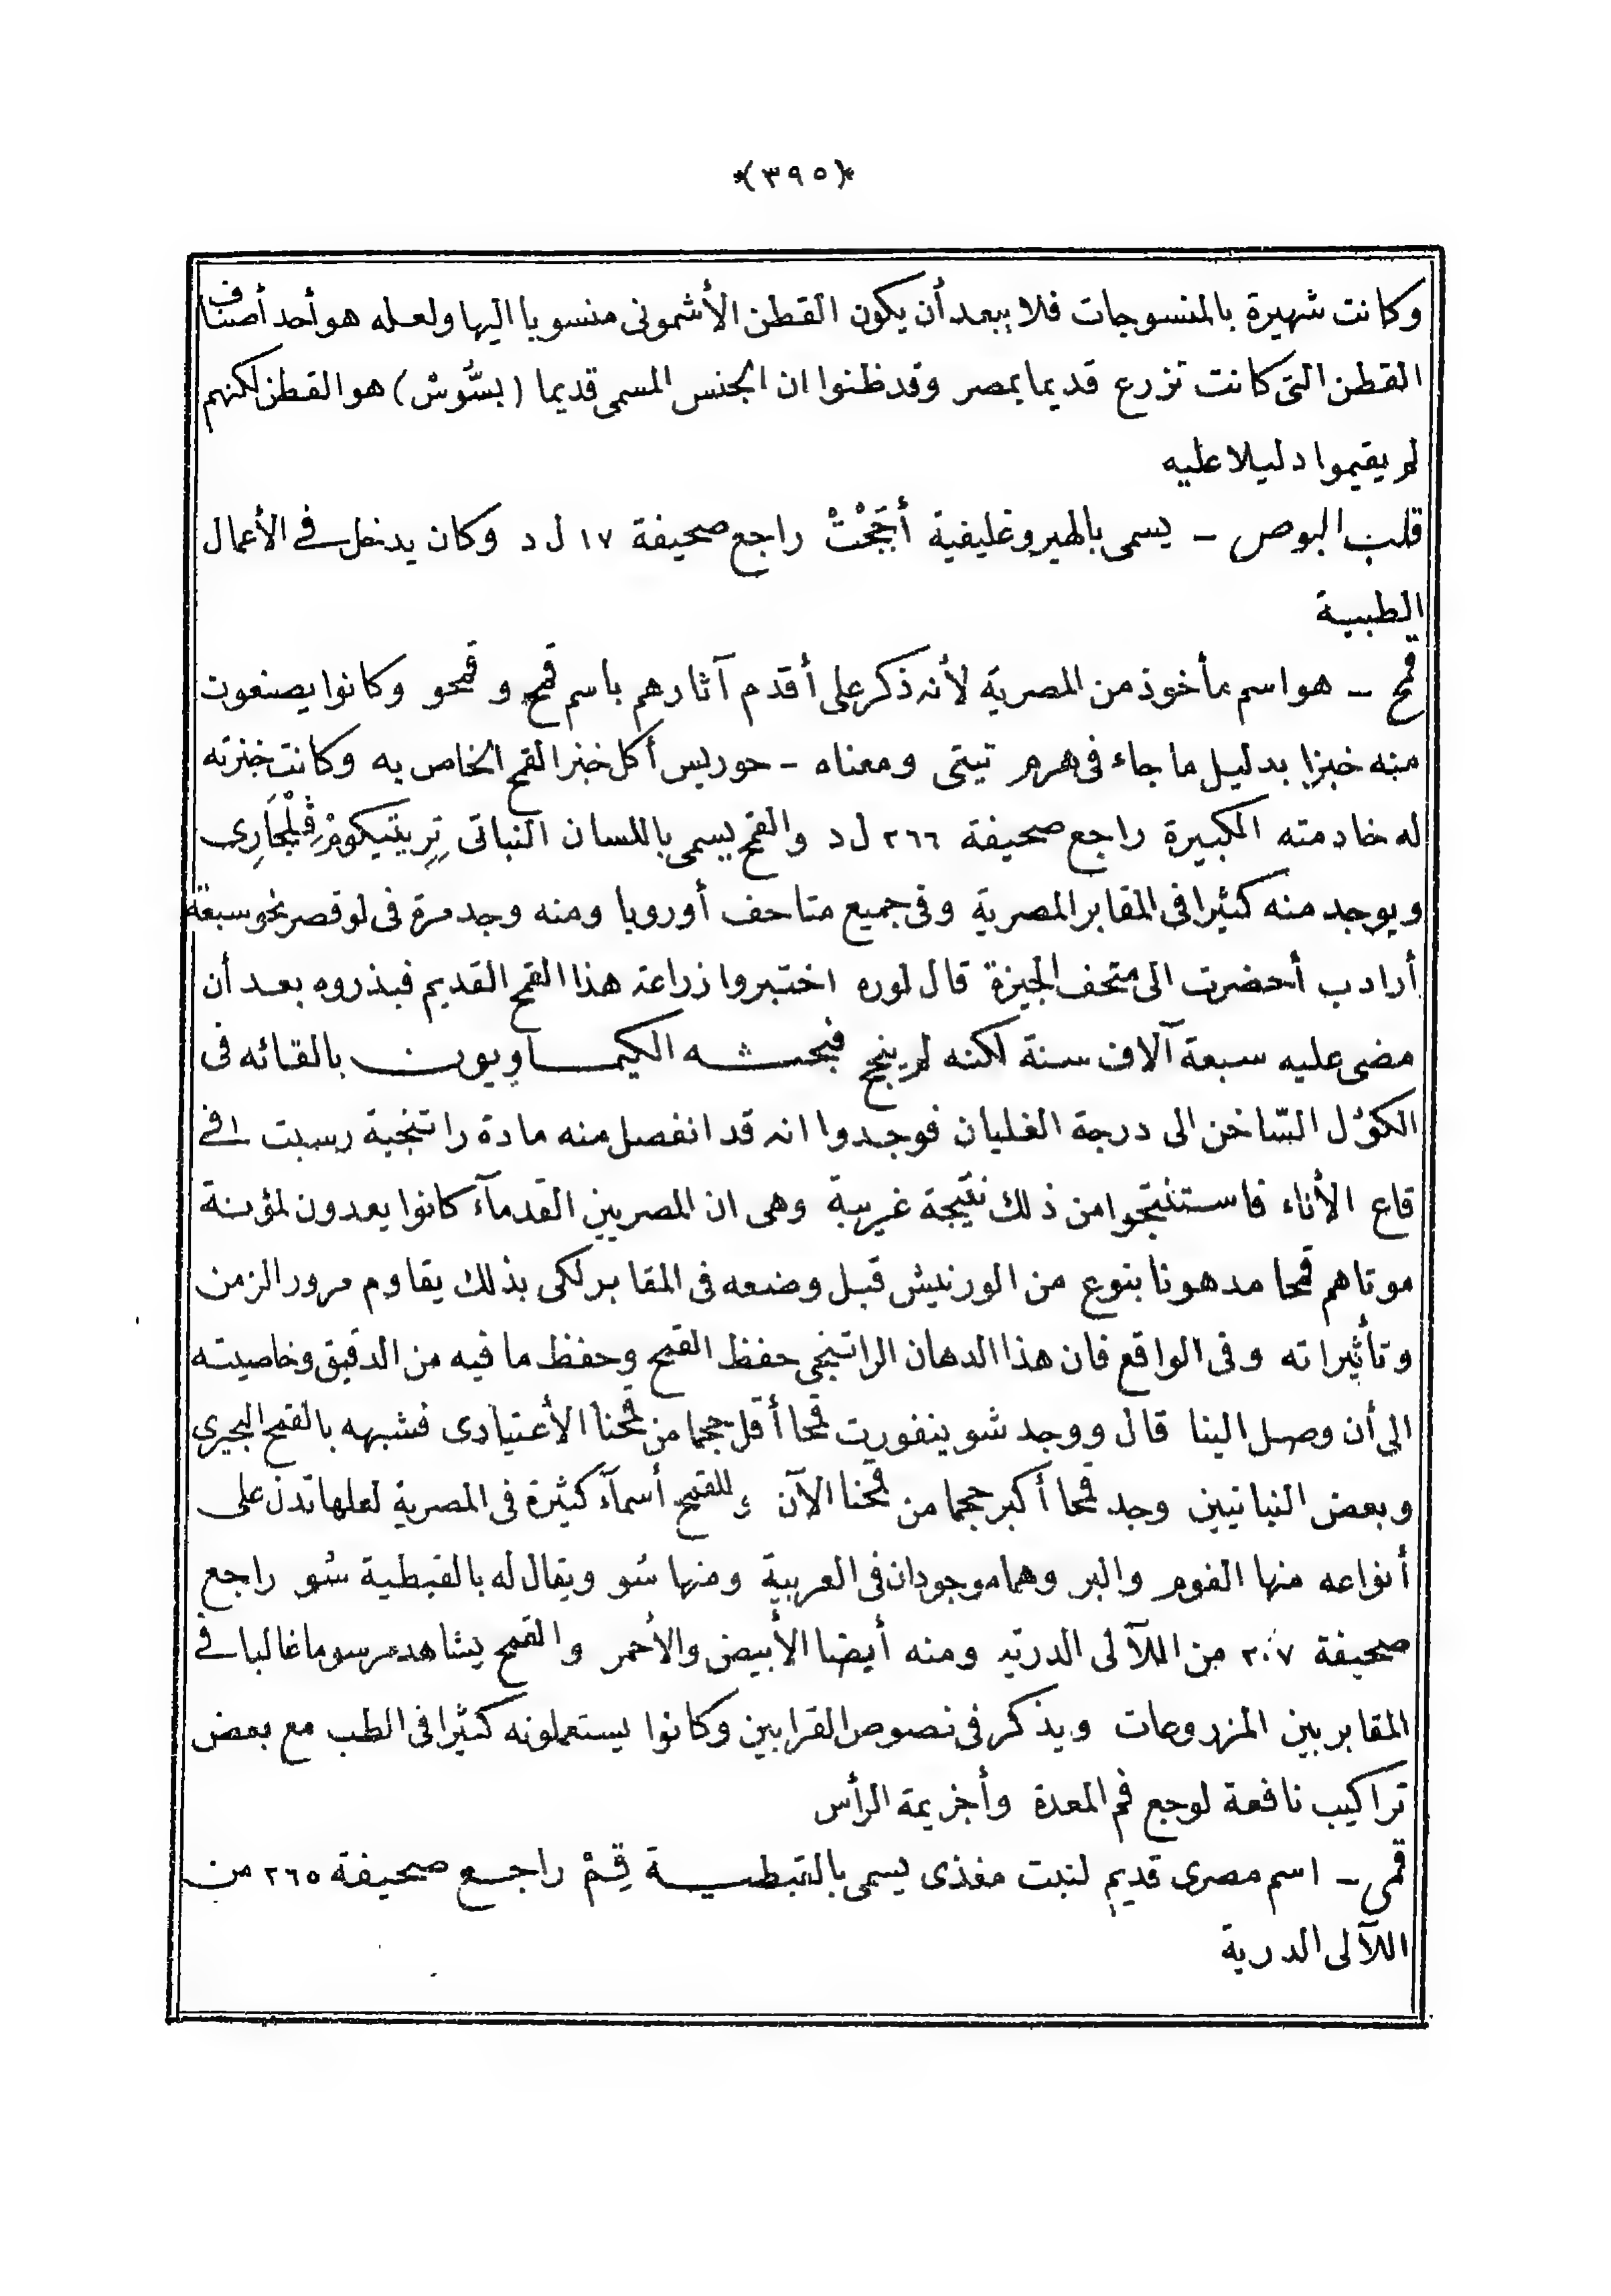 ﴿٣٩٥﴾
وكانت شهيرة بالمنسوجات فلا يبعد أن يكون القطن الأشمونى منسوبا اليها ولعله هو أحد أصناف
القطن التى كانت تزرع قديما بمصر وقد ظنوا ان الجنس المسمى قديما (بسُّوش) هو القطن لكنهم
لم يقيموا دليلا عليه
قلب البوص ـ يسمى بالهيروغليفية راجع صحيفة ١٧ ل د وكان يدخل فى الأعمال
الطبية
قمح ـ هو اسم مأخوذ من المصرية لأنه ذكر على أقدم آثارهم باسم قمح و قمحو وكانوا يصنعون
منه خبزا بدليل ما جاء فى هرم تيتى ومعناه ـ حوريس أكل خبز القمح الخاص به وكانت خبزته
له خادمته الكبيرة راجع صحيفة ٢٦٦ ل د والقمح يسمى باللسان النباتى تِرِيتيكومْ ڤُلْجَارِى
ويوجد منه كثيرا فى المقابر المصرية وفى جميع متاحف أوروبا ومنه وجد مرة فى لوقصر نحو سبعة
أرادب أحضرت الى متحف الجيزة قال لوره اختبروا زراعة هذا القمح القديم فبذروه بعد أن
مضى عليه سبعة آلاف سنة لكنه لم ينجح فبحثه الكيماويون بالقائه فى
الكؤل السّاخن الى درجة الغليان فوجدوا انه قد انفصل منه مادة راتنجية رسبت فى
قاع الأناء فاستنتجوا من ذلك نتيجة غريبة وهى ان المصريين القدمآء كانوا يعدون لمؤنة
موتاهم قمحا مدهونا بنوع من الورنيش قبل وضعه فى المقابر لكى بذلك يقاوم مرور الزمن
وتأثيراته وفى الواقع فان هذا الدهان الراتنجى حفظ القمح وحفظ ما فيه من الدقيق وخاصيته
الى أن وصل الينا قال ووجد شوينفورت قمحا أقل حجما من قمحنا الأعتيادى فشبهه بالقمح البحيرى
وبعض النباتيين وجد قمحا أكبر حجما من قمحنا الآن وللقمح أسمآء كثيرة فى المصرية لعلها تدل على
أنواعه منها الفوم والبر وهما موجودان فى العربية ومنها سُو ويقال له بالقبطية سُو راجع
صحيفة ٢٠٧ من اللآلى الدرية ومنه أيضا الأبيض والأحمر والقمح يشاهد مرسوما غالبا فى
المقابر بين المزروعات ويذكر فى نصوص القرابين وكانوا يستعملونه كثيرا فى الطب مع بعض
تراكيب نافعة لوجع فم المعدة وأخزيمة الرأس
قمى ـ اسم مصرى قديم لنبت مغذى يسمى بالقبطية قِمْ راجع صحيفة ٢٦٥ من
اللآلى الدرية